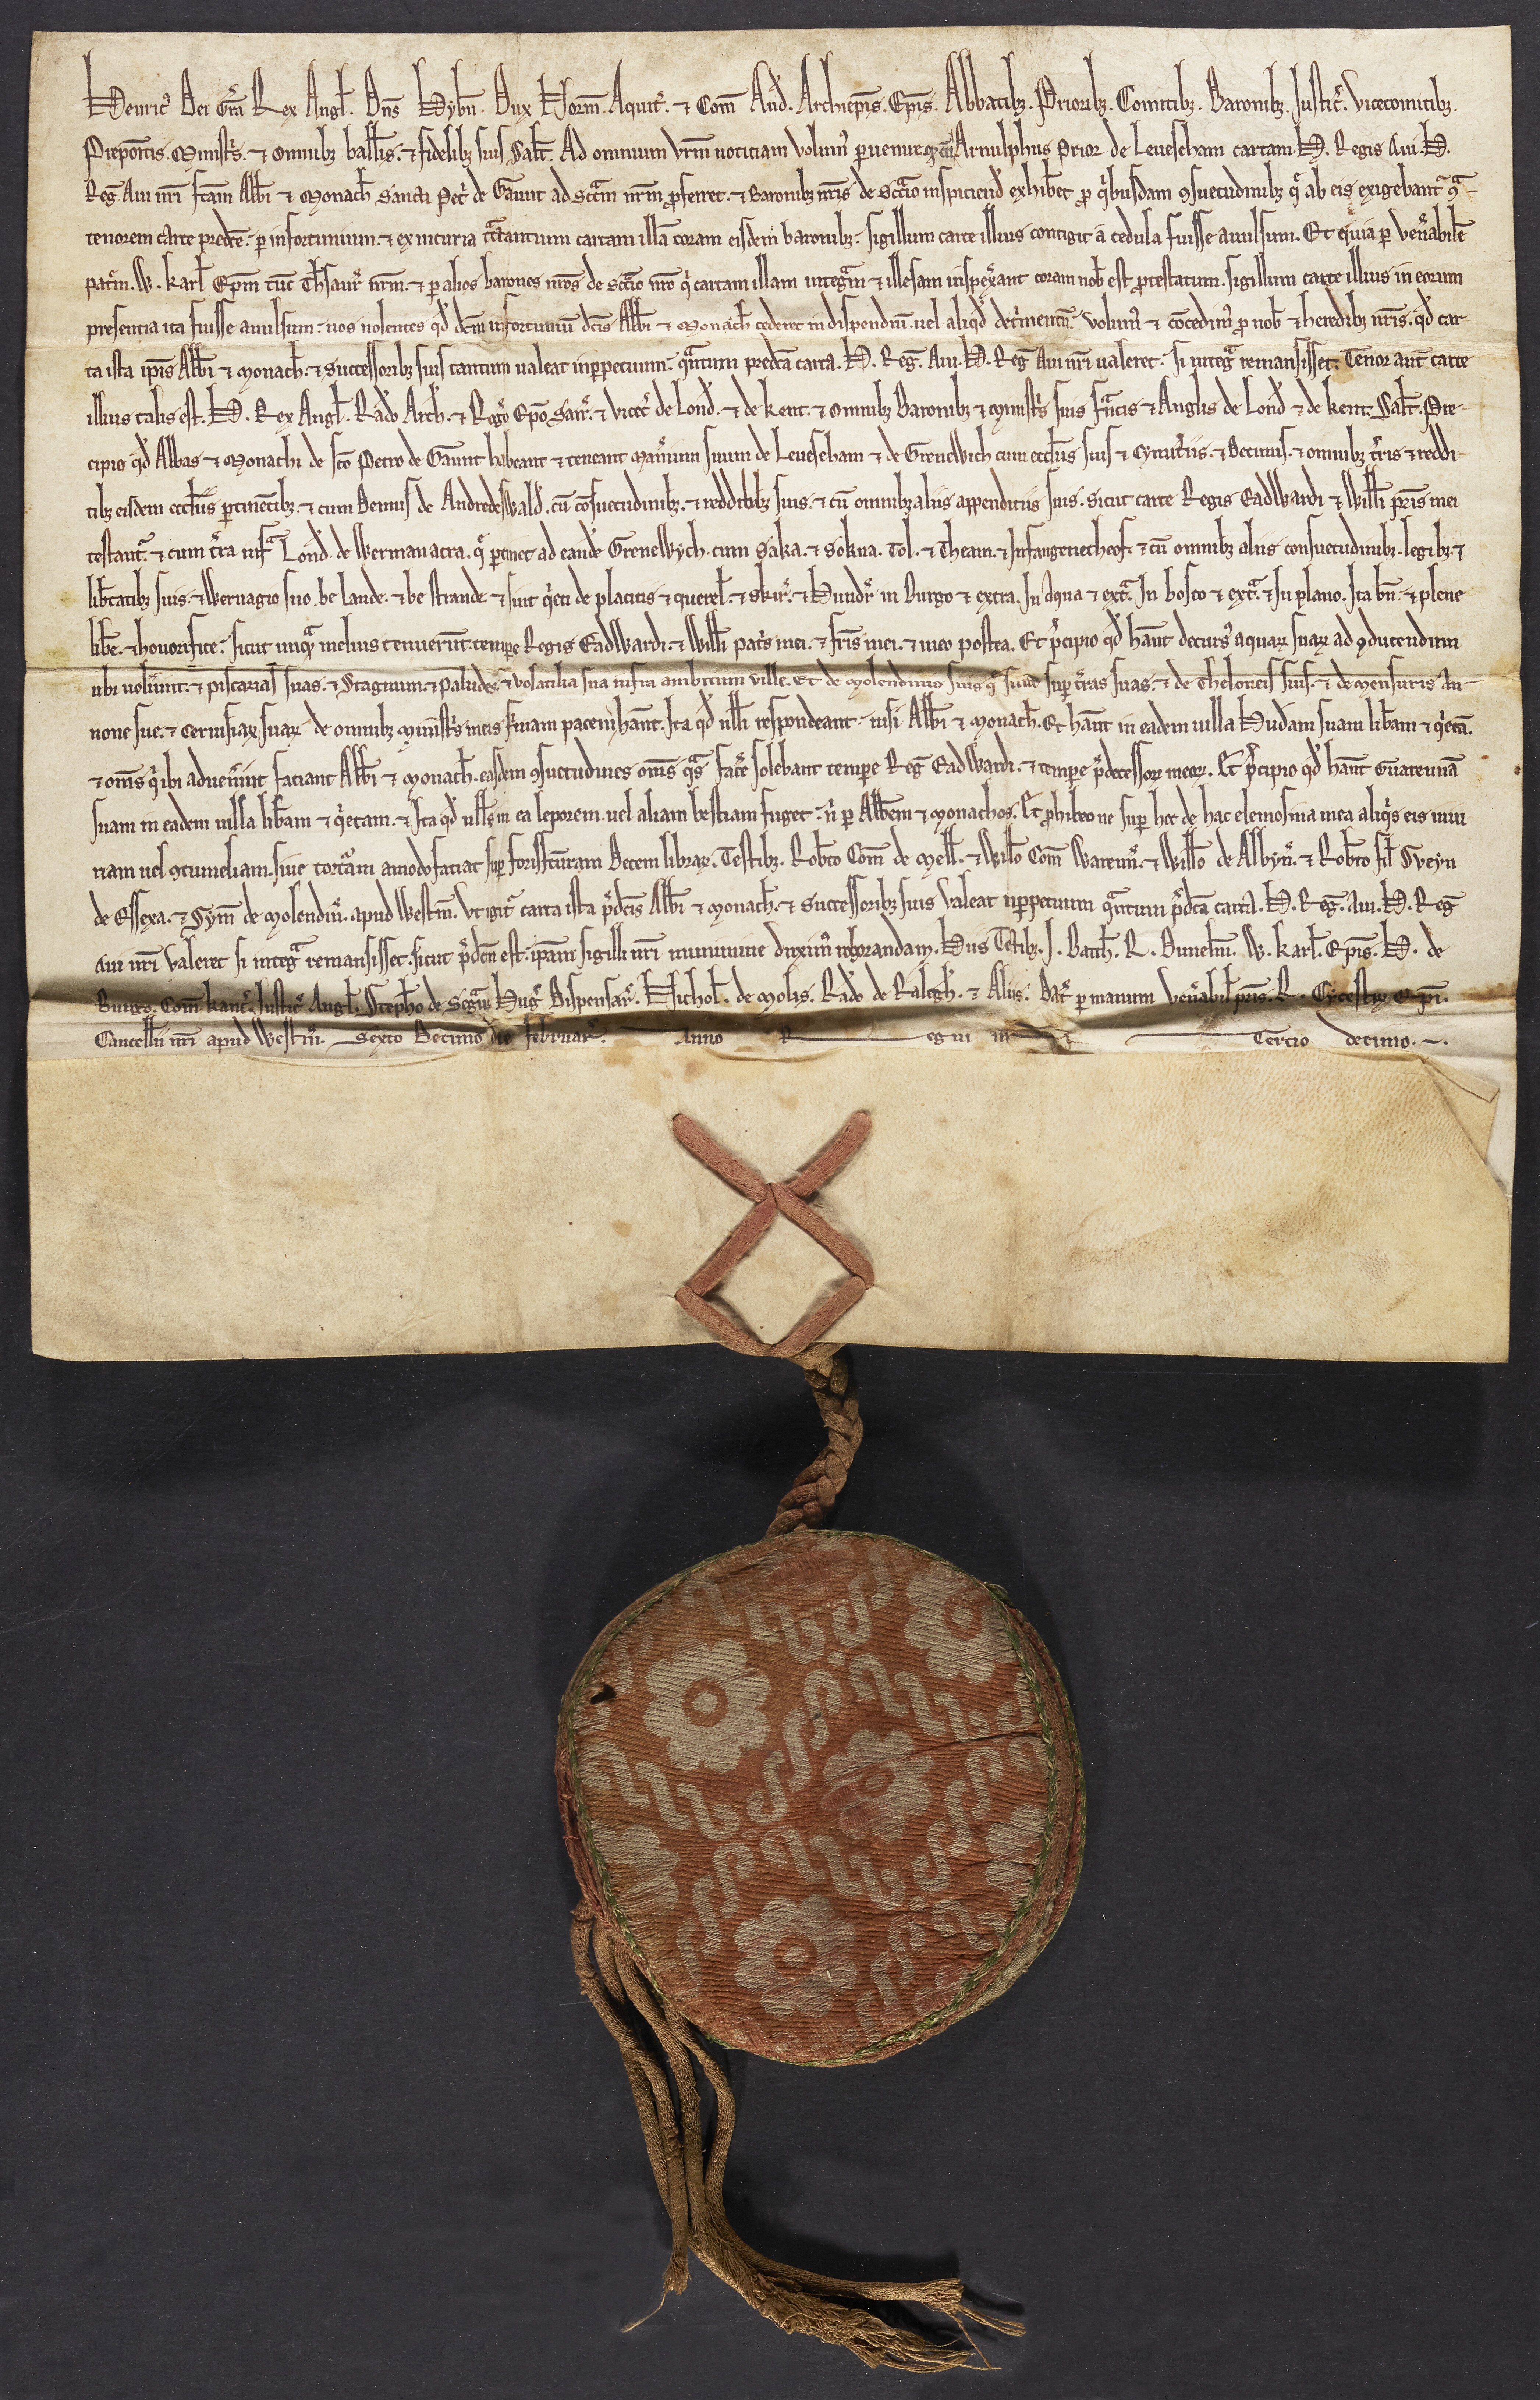 Henric̉ Dei Gr̃a Rex Angl̃. Dñs Hybñ. Dux Norm̃. Aquit̃. ⁊ Com̃ And̃. Archiep̃is. Ep̃is. Abbatibꝫ. Prioribꝫ. Comitibꝫ. Baronibꝫ. Justic̃. vicecomitibꝫ.
Prepoſitis. Miniſtr̃. ⁊ omnibꝫ ball̃is. ⁊ fidelibꝫ ſuis Sal̃t. Ad omnium vr̃m noticiam volum̉ ꝑuenire Arnulphus Prior de Leueſeham cartam. H. Regis Aui. H.
Reg̃. Aui nr̃i fc̃am Abb̃i ⁊ Monach̃ Sancti Pet̃ de Gaunt ad Scc̃m nr̃m ꝓferret. ⁊ Baronibꝫ nr̃is de Scc̃io inſpiciend̃ exhib̃et ꝓ q̉buſdam ꝯſuetudinibꝫ q̃ ab eis exigebant̃ ꝯ̃-
tenorem carte predc̃e. ꝑ infortunium. ⁊ ex incuria tr̃ctantium cartam illã coram eiſdem baronibꝫ. ſigillum carte illius contigit a cedula fuiſſe auulſum. Et quia ꝑ veñabilẽ
patr̃m. W. karl̃ Ep̃m tũc Th̃ſaur̃ nr̃m. ⁊ ꝑ alios barones nr̃os de Scc̃io nr̃o q̉ cartam illam integr̃m ⁊ illeſam inſpex̃ant coram nob̃ eſt ꝓteſtatum. ſigillum carte illius in eorum
preſentia ita fuiſſe auulſum. nos nolentes qd̃ dc̃m infortuniũ dc̃is Abb̃i ⁊ Monach̃ cederet in diſpendiũ. uel aliqd̃ det̃mentũ. volum̉ ⁊ cõcedim̉ ꝓ nob̃ ⁊ heredibꝫ nr̃is. qd̃ car-
ta iſta ip̃is Abb̃i ⁊ monach̃. ⁊ ſucceſſoribꝫ ſuis tantum ualeat inꝑpetuum. q̃ntum predc̃a carta. H. Reg̃. Aui. H. Reg̃ Aui nr̃i ualeret. ſi integ̃ remanſiſſet. Tenor aut̃ carte
illius talis eſt. H. Rex Angl̃. Rad̃o Arch̃. ⁊ Rog̃o Ep̃o Sar̃. ⁊ vicec̃ de Lond̃. ⁊ de kent. ⁊ omnibꝫ Baronibꝫ ⁊ miniſtr̃ ſuis fr̃ncis ⁊ Anglis de Lond̃ ⁊ de kent. Sal̃t. Pre-
cipio qd̃ Abbas ⁊ Monachi de ſc̃o Petro de Gaunt habeant ⁊ teneant Man̉ium ſuum de Leueſeham ⁊ de Grenewich cum eccl̃iis ſuis ⁊ Cymit̃iis. ⁊ Decimis. ⁊ omnibꝫ t̃ris ⁊ reddi-
tibꝫ eiſdem eccl̃iis ꝑtinẽtibꝫ. ⁊ cum Dennis de Andredeſwald̃. cũ cõſuetudinibꝫ. ⁊ redditibꝫ ſuis. ⁊ cũ omnibꝫ aliis appenditiis ſuis. Sicut carte Regis Eadwardi ⁊ Will̃i pr̃is mei
teſtant̃. ⁊ cum t̃ra inf̃ Lond̃. de Wermanacra. q̃ ꝑtinet ad eand̃e Grenewych. cum Saka. ⁊ Sokna. Tol. ⁊ Theam. ⁊ Infangenetheof. ⁊ cũ omnibꝫ aliis conſuetudinibꝫ. legibꝫ. ⁊
lib̃tatibꝫ ſuis. ⁊ Wernagio ſuo. be lande. ⁊ be ſtrande. ⁊ ſint q̉eti de placitis ⁊ querel̃. ⁊ Skir̃. ⁊ Hundr̃ in Burgo ⁊ extra. In Aqua ⁊ ext̃. In boſco ⁊ ext̃. ⁊ In plano. Ita bñ. ⁊ plene
lib̃e. ⁊ honorifice. ſicut unq̃ melius tenuerũt. tempe Regis Eadwardi. ⁊ Will̃i pat̉s mei. ⁊ fr̃is mei. ⁊ meo poſtea. Et p̉cipio qd̃ hãnt decurſ̉ aquaꝝ ſuaꝝ ad ꝯducendum
ubi uolũint. ⁊ piſcarias ſuas. ⁊ Stagnum. ⁊ paludes. ⁊ volatilia ſua infra ambitum ville. Et de molendinis ſuis q̃ ſunt ſuꝑ t̃ras ſuas. ⁊ de Theloneis ſuiſ. ⁊ de menſuris An-
none ſue. ⁊ ceruiſiaꝝ ſuaꝝ de omnibꝫ miniſtr̃ meis firmam pacem hãnt. Ita qd̃ nll̃i reſpondeant. niſi Abb̃i ⁊ monach̃. Et hãnt in eadem uilla Hudam ſuam lib̃am ⁊ q̉etã.
⁊ om̃s q̉ ibi aduen̉int faciant Abb̃i ⁊ Monach̃. eaſdem ꝯſuetudines om̃s q̃s fac̃e ſolebant tempe Reg̃ Eadwardi. ⁊ tempe p̃deceſſoꝝ meoꝝ. Et p̉cipio qd̃ hãnt Guarennã
ſuam in eadem uilla lib̃am ⁊ q̉etam. ⁊ Ita qd̃ nll̃s in ea leporem. uel aliam beſtiam fuget. ñ ꝑ Abb̃em ⁊ monachos. Et ꝓhibeo ne ſuꝑ hoc de hac elemoſina mea aliq̉s eis iniu
riam uel ꝯtumeliam. ſiue tort̃am amodo faciat ſuꝑ foriſfc̃uram Decem libraꝝ. Teſtibꝫ. Rob̃to Com̃ de Mell̃. ⁊ Will̃o Com̃ Warenñ. ⁊ Will̃o de Albyñ. ⁊ Rob̃to fil̃ Sveyn
de Eſſexa. ⁊ Sym̃ de Molendiñ. apud Weſtm̃. Vt igit̃ carta iſta p̃dc̃is Abb̃i ⁊ Monach̃. ⁊ ſucceſſoribꝫ ſuis valeat inꝑpetuum q̃ntum p̃dc̃a carta. H. Reg̃. Aui. H. Reg̃
Aui nr̃i valeret ſi integ̃ remanſiſſet. ſicut p̃dc̃m eſt. ip̃am ſigilli nr̃i munimine duxim̉ roborandam. Hiis Teſtibꝫ. J. Bath̃. R. Dunelm̃. W. karl̃. Ep̃is. H. de
Burgo. Com̃ kanc̃. Juſtic̃ Angl̃. Steph̃o de Segr̃. Hug̃ Diſpenſar̃. Nichol̃. de Molis. Rad̃o de Ralegh̃. ⁊ Aliis. Dat̃ ꝑ manum veñabil̃ pr̃is. R. Cyceſtr̃ Ep̃i.
Cancell̃ii nr̃i apud Weſtm̃. Sexto Decimo die februar̃. Anno Regni nr̃i Tercio decimo.